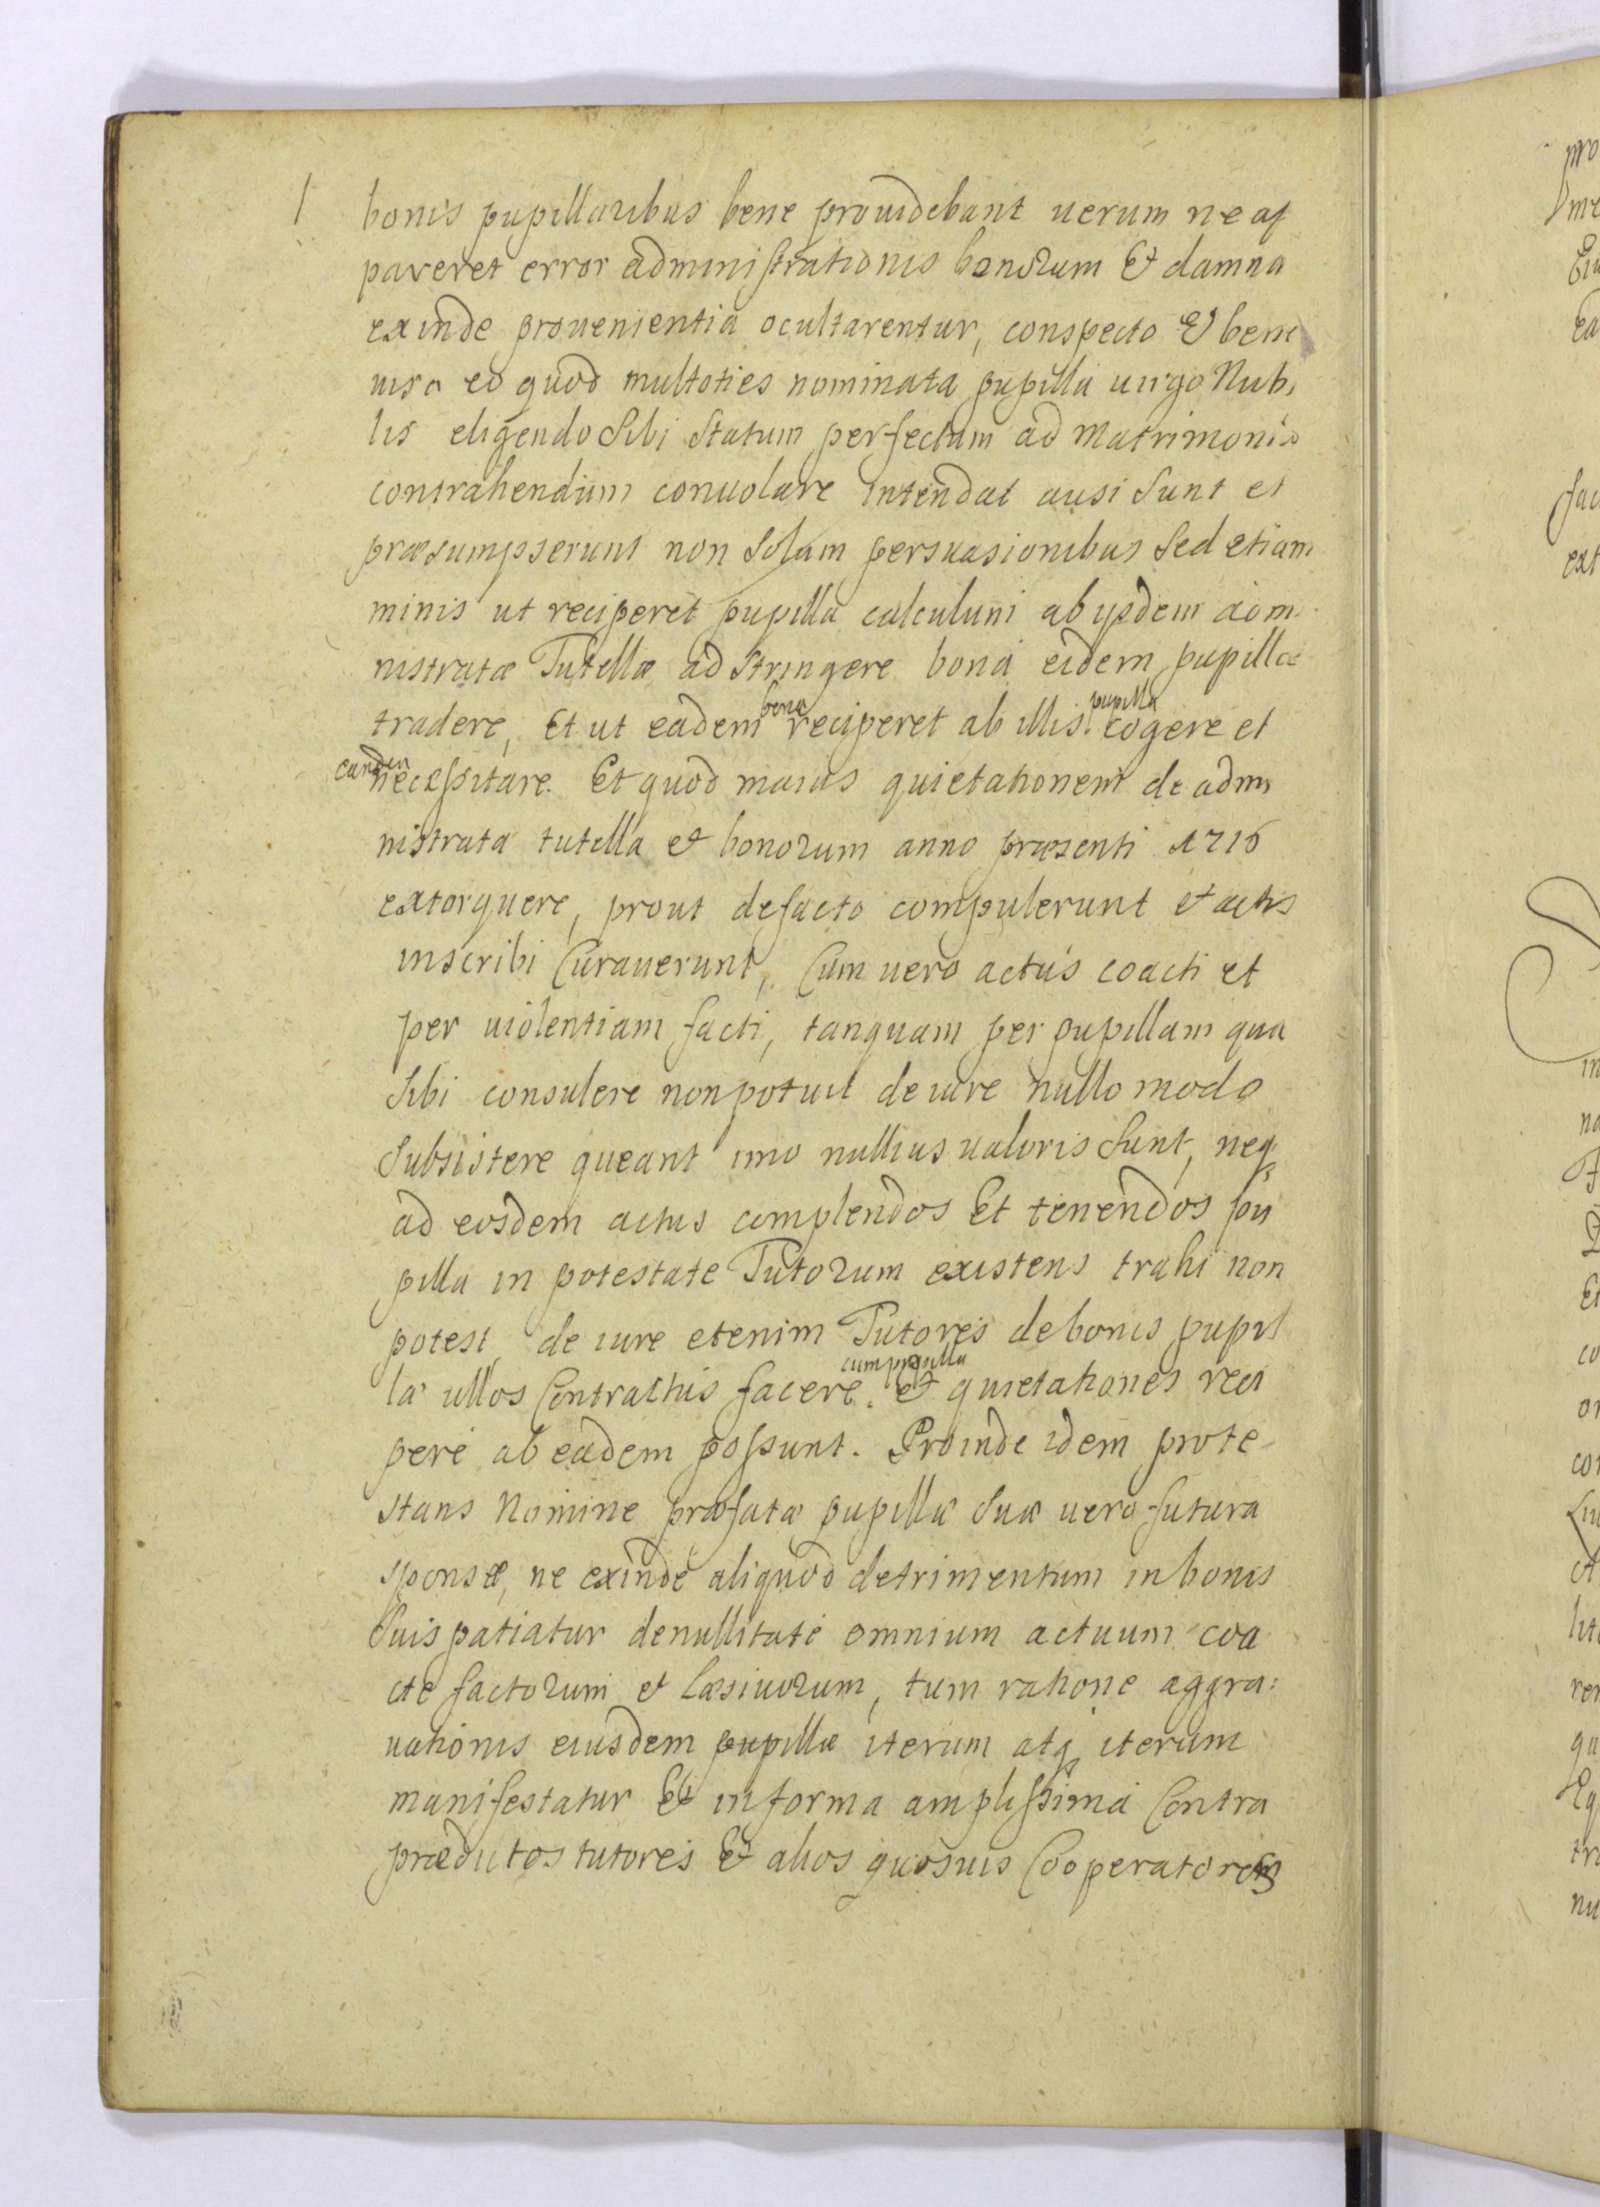 bonis pupillaribus bene prouidebant uerum ne ap
pareret error administrationis bonorum Et damna
exinde prouenientia ocultarentur, conspecto Et bene
uiso eo quod multoties nominata pupilla uirgo Nubi
lis eligendo Sibi Statum perfectum ad Matrimonio
contrahendum conuolare intendat ausi Sunt et
præsumpserunt non Solum persuasionibus Sed etiam
minis ut reciperet pupilla calculum ab ysdem admi
nistratæ Tutellæ ad stringere bona eidem pupillæ
tradere, Et ut eadem bona reciperet ab illis. pupilla cogere et
eandem necessitare. Et quod maius quietationem de admi
nistrata tutella et bonorum anno præsenti 1716
extorquere, prout defacto compulerunt et actis
inscribi Curauerunt, Cum uero actus coacti et
per uiolentiam facti, tanquam per pupillam qua
Sibi consulere non potuit de iure nullo modo
Subsistere queant imo nullius ualoris Sunt, neq
ad eosdem actus complendos Et tenendos pu
pilla in potestate Tutorum existens trahi non
potest, de iure etenim Tutores de bonis pupil
la ullos Contractus facere. cum pupilla et quietationes reci
pere ab eadem possunt. Proinde idem prote
stans Nomine præfatæ pupillæ Suæ uero futura
sponsæ, ne exinde aliquod detrimentum in bonis
Suis patiatur de nullitate omnium actuum coa
cte factorum et læsiuorum, tum ratione aggra:
uationis eiusdem pupillæ iterum atq iterum
manifestatur Et in forma amplissima Contra
prædictos tutores Et alios quosuis Cooperatores